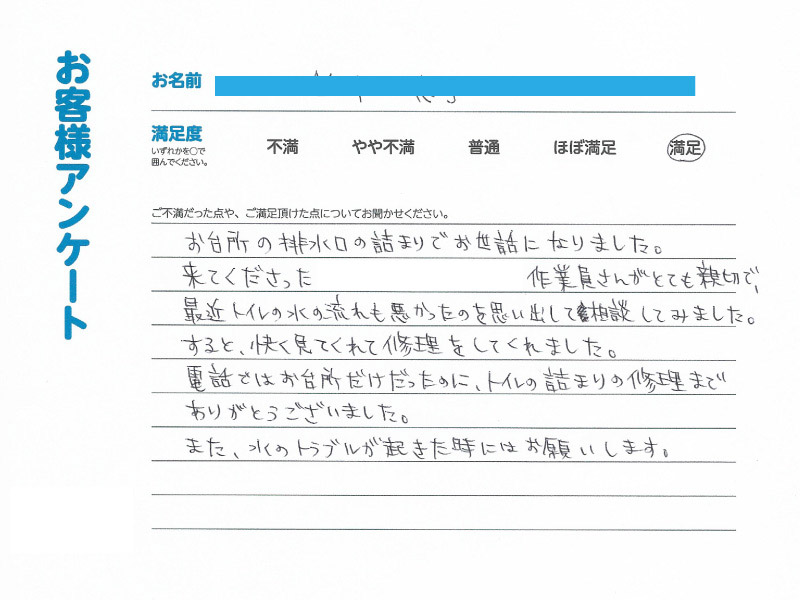 お客様アンケート
お名前
満足度
いずれかを○で
囲んでください。
不満 やや不満 普通 ほぼ満足 満足
ご不満だった点や、ご満足頂けた点についてお聞かせください。
お台所の排水口の詰まりでお世話になりました。
来てくださった 作業員さんがとても親切で、
最近トイレの水の流れも悪かったのを思い出して相談してみました。
すると、快く見てくれて修理をしてくれました。
電話ではお台所だけだったのに、トイレの詰まりの修理まで
ありがとうございました。
また、水のトラブルが起きた時にはお願いします。